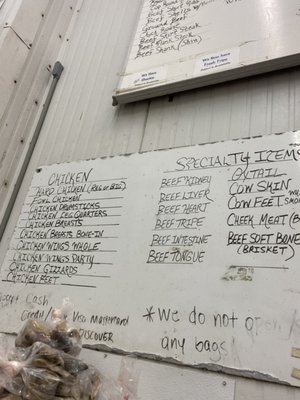 Ground Beef
Beef Shank (Shin)
We Have
We have
Fresh Tripe
CHICKEN
HARD CHICKEN (REG OR BIG)
FOWL CHICKEN
CHICKEN DRUMSTICKS
CHICKEN LEG QUARTERS
CHICKEN BREASTS
CHICKEN BREASTS BONE-IN
CHICKEN WINGS WHOLE
CHICKEN WINGS PARTY
CHICKEN GIZZARDS
CHICKEN FEET
SPECIALTY ITEMS
BEEF KIDNEY
BEEF LIVER
BEEF HEART
BEEF TRIPE
BEEF INTESTINE
BEEF TONGUE
OXTAIL
COW SKIN
COW FEET
CHEEK MEAT
BEEF SOFT BONE
(BRISKET)
Cash
Credit/ Visa Mastercard
DISCOVER
*We do not open
any bags